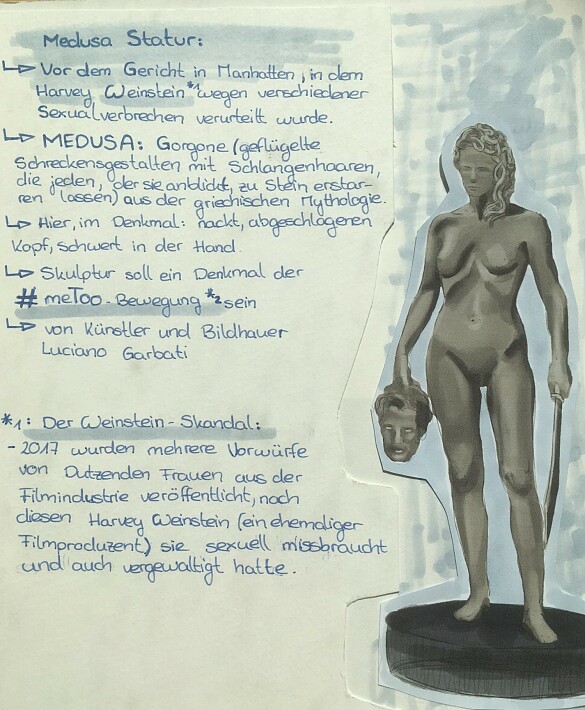 Medusa Statur:
↳ Vor dem Gericht in Manhatten, in dem
Harvey Weinstein*1 wegen verschiedener
Sexualverbrechen verurteilt wurde.
↳ MEDUSA: Gorgone (geflügelte
Schreckensgestalten mit Schlangenhaaren,
die jeden, der sie anblickt, zu Stein erstar-
ren lassen) aus der griechischen Mythologie.
↳ Hier, im Denkmal: nackt, abgeschlagenen
Kopf, schwert in der Hand.
↳ Skulptur soll ein Denkmal der
# meToo-Bewegung *2 sein
↳ von Künstler und Bildhauer
Luciano Garbati
*1: Der Weinstein-Skandal:
- 2017 wurden mehrere Vorwürfe
von Dutzenden Frauen aus der
Filmindustrie veröffentlicht, nach
diesen Harvey Weinstein (ein ehemaliger
Filmproduzent) sie sexuell missbraucht
und auch vergewaltigt hatte.